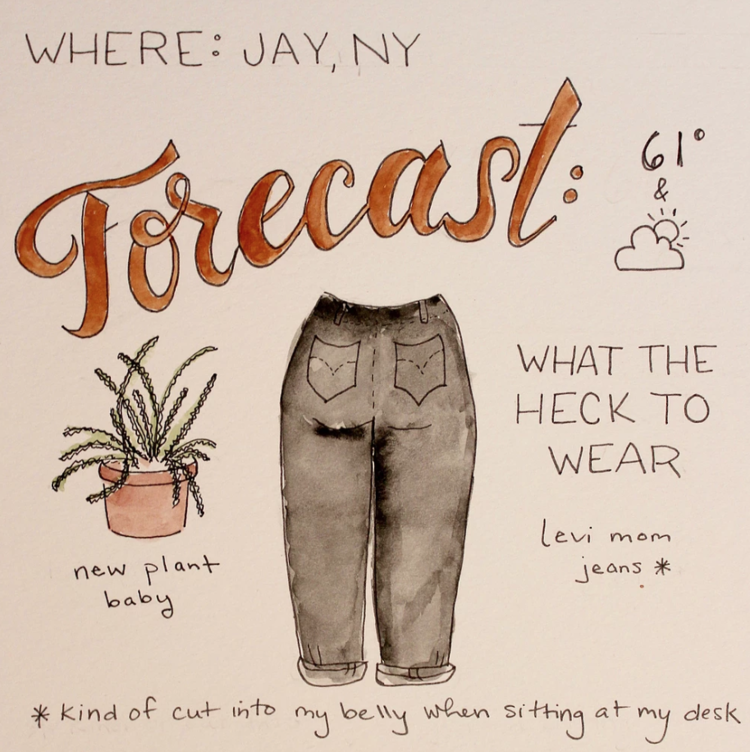 WHERE: JAY, NY
Forecast:
61°
&
WHAT THE
HECK TO
WEAR
levi mom
jeans *
new plant
baby
* kind of cut into my belly when sitting at my desk